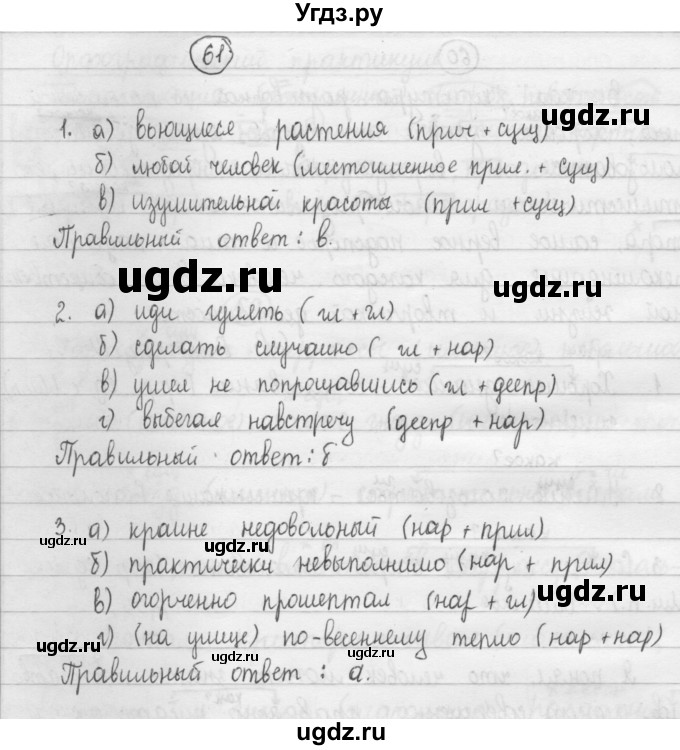 Угдз.ру
61
1. а) вьющиеся растения (прич + сущ)
б) любой человек (местоименное прил. + сущ)
в) изумительной красоты (прил + сущ)
Правильный ответ: в.
2. а) иди гулять (гл + гл)
б) сделать случайно (гл + нар)
в) ушел не попрощавшись (гл + деепр)
г) выбегая навстречу (деепр + нар)
Правильный ответ: б
3. а) крайне недовольный (нар + прил)
б) практически невыполнимо (нар + прил)
в) огорченно прошептал (нар + гл)
г) (на улице) по-весеннему тепло (нар + нар)
Правильный ответ: а.
ugdz.ru
ugdz.ru
ugdz.ru
ugdz.ru
ugdz.ru
ugdz.ru
ugdz.ru
ugdz.ru
ugdz.ru
ugdz.ru
ugdz.ru